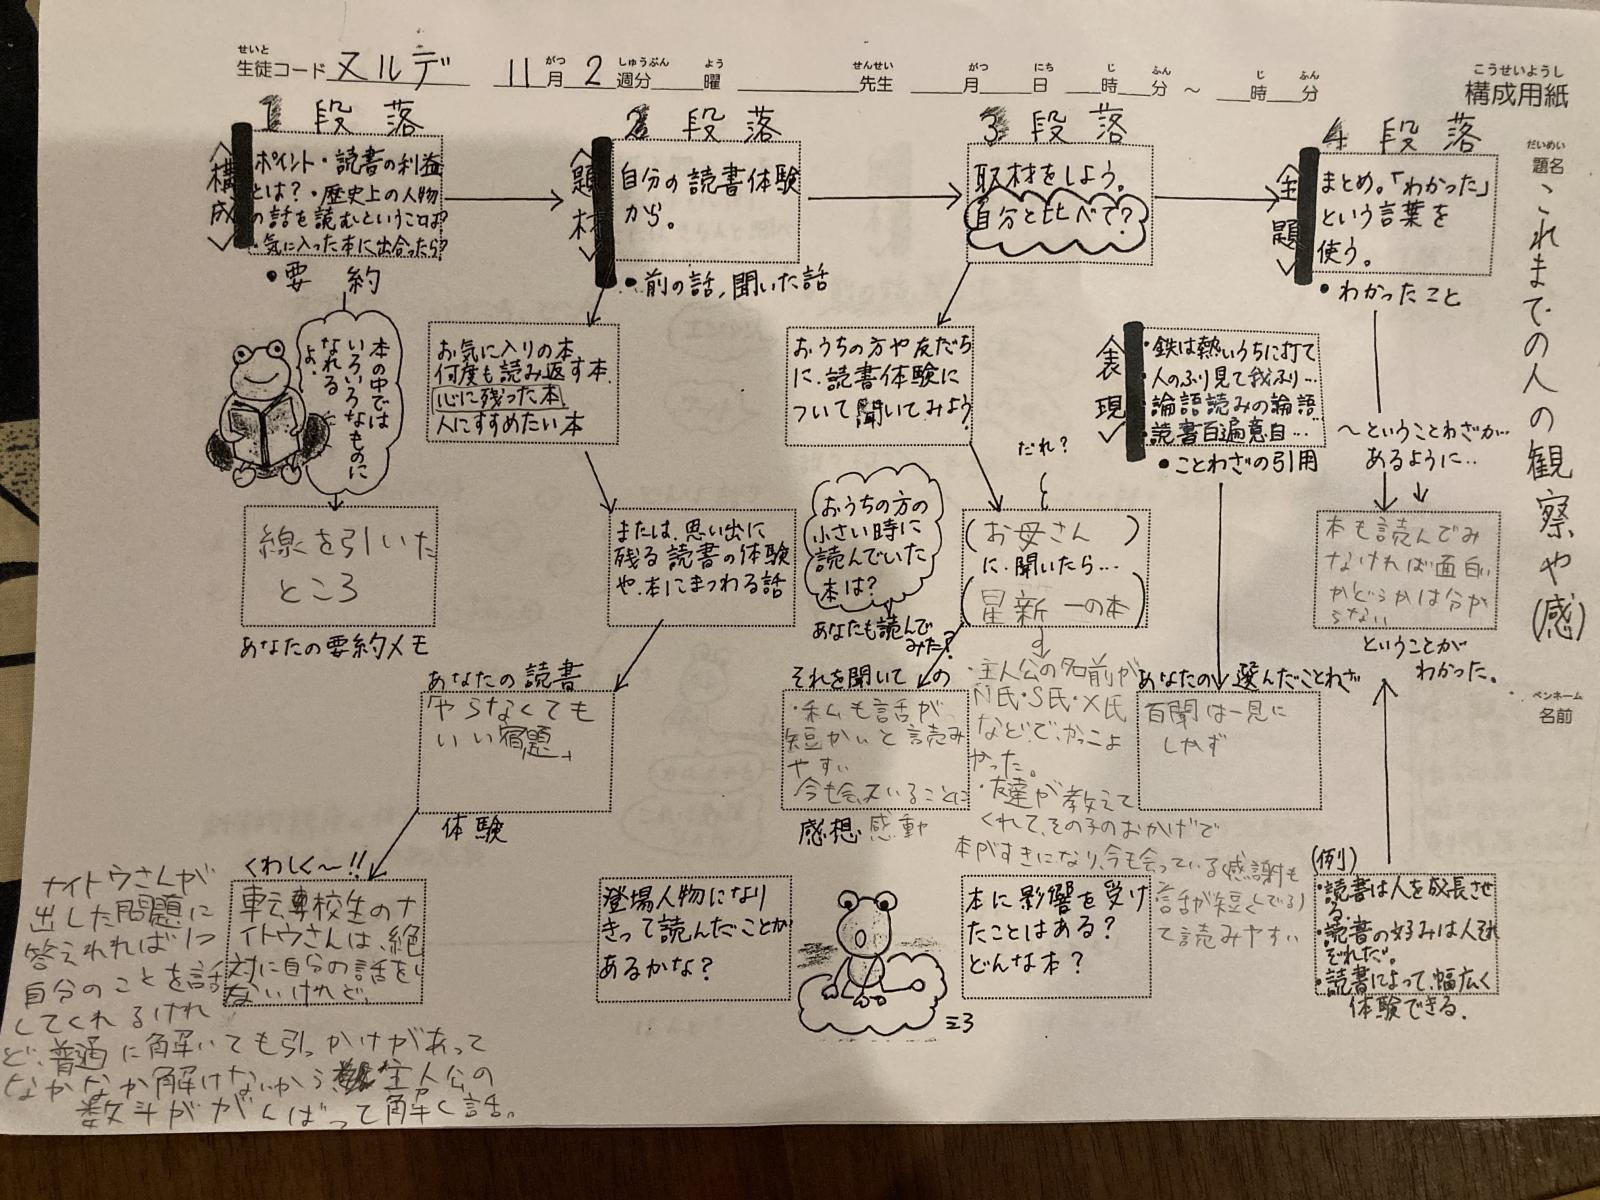 せいと
生徒コード ヌルデ 11月 2週分 曜 先生 月 日 時 分 ～ 時 分
がつ しゅうぶん よう せんせい がつ にち じ ふん じ ふん
こうせいようし
構成用紙
だいめい
題名
これまでの人の観察や(感)
ペンネーム
名前
1段落
<構成>
ポイント・読書の利益
とは？・歴史上の人物
の話を読むということは？
・気に入った本に出合ったら？
・要約
本の中では
いろいろなものに
なれる
よ。
線を引いた
ところ
あなたの要約メモ
2段落
<題材>
自分の読書体験
から。
・前の話，聞いた話
お気に入りの本
何度も読み返す本
心に残った本
人にすすめたい本
または、思い出に
残る読書の体験
や、本にまつわる話
あなたの読書
「やらなくても
いい宿題」
体験
くわしく～!!
転校生のナ
イトウさんは、絶
対に自分の話をし
ないけれど、
ナイトウさんが
出した問題に
答えれれば1つ
自分のことを話
してくれるけれ
ど、普通に解いても引っかけがあって
なかなか解けないから 主人公の
数斗ががんばって解く話。
3段落
取材をしよう。
自分と比べて？
おうちの方や友だち
に、読書体験に
ついて聞いてみよう
だれ？
おうちの方の
小さい時に
読んでいた
本は？
あなたも読んで
みた？
(お母さん)
に、聞いたら…
(星新一の本)
・主人公の名前が
N氏・S氏・X氏
などで、かっこよ
かった。
・友達が教えて
くれて、その子のおかげで
本がすきになり、今も会っている感謝も
話が短く
て読みやすい
それを聞いての
・私も話が
短かいと読み
やすい
今も会えていることに
感想・感動
登場人物になり
きって読んだことが
あるかな？
本に影響を受け
たことはある？
どんな本？
4段落
<主題>
まとめ。「わかった」
という言葉を
使う。
・わかったこと
<表現>
・鉄は熱いうちに打て
・人のふり見て我ふり…
・論語読みの論語…
・読書百遍意自…
・ことわざの引用
～ということわざが…
あるように…
本も読んでみ
なければ面白い
かどうかは分か
らない
ということが
わかった。
あなたの選んだことわざ
百聞は一見に
しかず
(例)
・読書は人を成長させ
る。
・読書の好みは人それ
ぞれだ。
・読書によって、幅広く
体験できる。